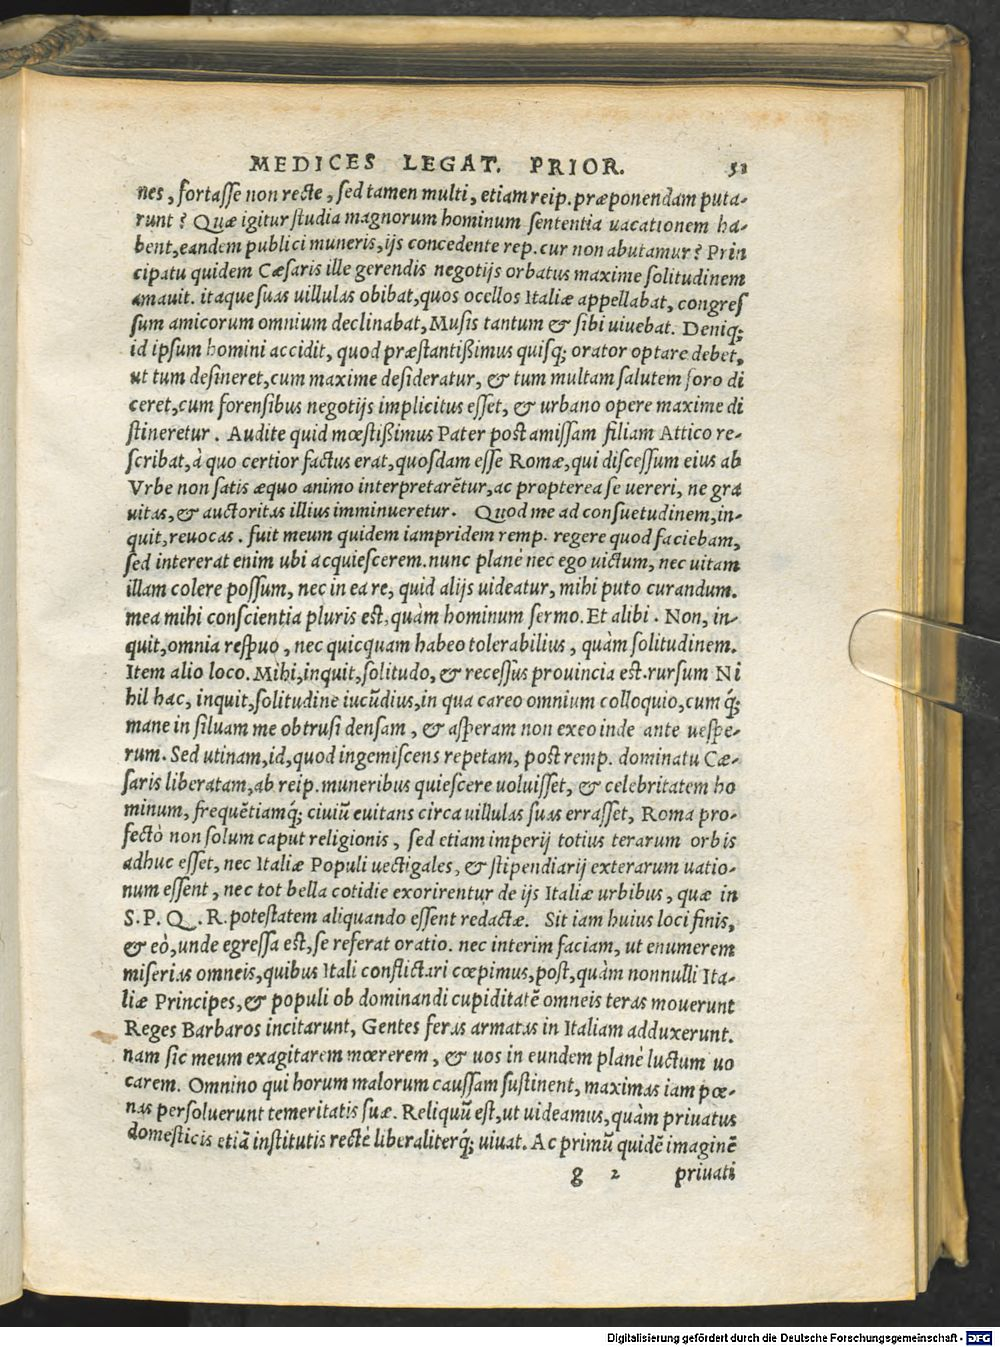 MEDICES LEGAT. PRIOR. 52
nes, fortasse non recte, sed tamen multi, etiam reip. præponendam puta-
runt? Quæ igitur studia magnorum hominum sententia uacationem ha-
bent, eandem publici muneris, ijs concedente rep. cur non abutamur? Prin
cipatu quidem Cæsaris ille gerendis negotijs orbatus maxime solitudinem
amauit. itaque suas uillulas obibat, quos ocellos Italiæ appellabat, congres
sum amicorum omnium declinabat, Musis tantum & sibi uiuebat. Deniq;
id ipsum homini accidit, quod præstantißimus quisq; orator optare debet,
ut tum desineret, cum maxime desideratur, & tum multam salutem foro di
ceret, cum forensibus negotijs implicitus esset, & urbano opere maxime di
stineretur. Audite quid mœstißimus Pater post amissam filiam Attico re-
scribat, à quo certior factus erat, quosdam esse Romæ, qui discessum eius ab
Vrbe non satis æquo animo interpretarētur, ac propterea se uereri, ne gra
uitas, & auctoritas illius imminueretur. Quod me ad consuetudinem, in-
quit, reuocas. fuit meum quidem iampridem remp. regere quod faciebam,
sed intererat enim ubi acquiescerem. nunc planè nec ego uictum, nec uitam
illam colere possum, nec in ea re, quid alijs uideatur, mihi puto curandum.
mea mihi conscientia pluris est, quàm hominum sermo. Et alibi. Non, in-
quit, omnia respuo, nec quicquam habeo tolerabilius, quàm solitudinem.
Item alio loco. Mihi, inquit, solitudo, & recessus prouincia est. rursum Ni
hil hac, inquit, solitudine iucūdius, in qua careo omnium colloquio, cum q́;
mane in siluam me obtrusi densam, & asperam non exeo inde ante uespe-
rum. Sed utinam, id, quod ingemiscens repetam, post remp. dominatu Cæ-
saris liberatam, ab reip. muneribus quiescere uoluisset, & celebritatem ho
minum, frequētiamq́; ciuiū euitans circa uillulas suas errasset, Roma pro-
fectò non solum caput religionis, sed etiam imperij totius terarum orbis
adhuc esset, nec Italiæ Populi uectigales, & stipendiarij exterarum uatio-
num essent, nec tot bella cotidie exorirentur de ijs Italiæ urbibus, quæ in
S. P. Q. R. potestatem aliquando essent redactæ. Sit iam huius loci finis,
& eò, unde egressa est, se referat oratio. nec interim faciam, ut enumerem
miserias omneis, quibus Itali conflictari cœpimus, post, quàm nonnulli Ita-
liæ Principes, & populi ob dominandi cupiditatē omneis teras mouerunt
Reges Barbaros incitarunt, Gentes feras armatas in Italiam adduxerunt.
nam sic meum exagitarem mœrerem, & uos in eundem planè luctum uo
carem. Omnino qui horum malorum caussam sustinent, maximas iam pœ-
nas persoluerunt temeritatis suæ. Reliquū est, ut uideamus, quàm priuatus
domesticis etiā institutis rectè liberaliterq́; uiuat. Ac primū quidē imaginē
g 2 priuati
Digitalisierung gefördert durch die Deutsche Forschungsgemeinschaft - DFG